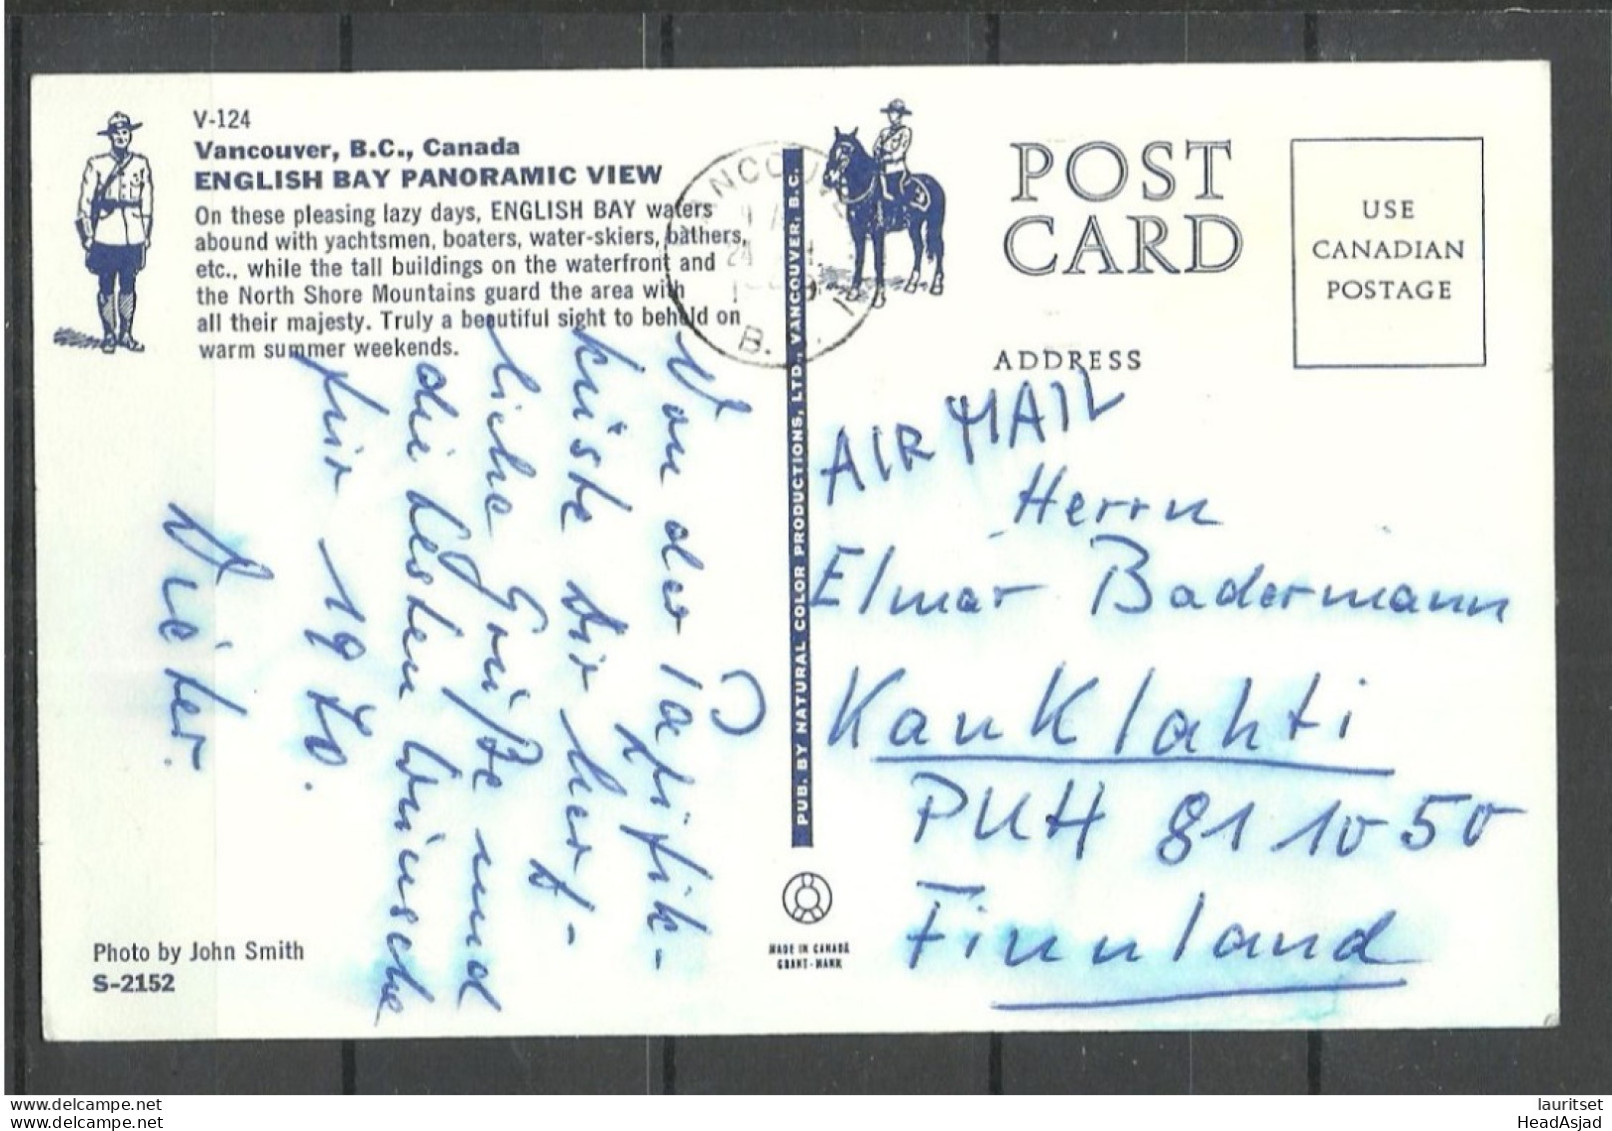 V-124
Vancouver, B.C., Canada
ENGLISH BAY PANORAMIC VIEW
On these pleasing lazy days, ENGLISH BAY waters
abound with yachtsmen, boaters, water-skiers, bathers,
etc., while the tall buildings on the waterfront and
the North Shore Mountains guard the area with
all their majesty. Truly a beautiful sight to behold on
warm summer weekends.
Von der Pazifik-
küste dir herz-
liche Grüße und
die besten Wünsche
für 1970.
Dieter.
Photo by John Smith
S-2152
VANCOUVER
24
B.C.
PUB. BY NATURAL COLOR PRODUCTIONS, LTD., VANCOUVER, B.C.
MADE IN CANADA
GRANT-MANN
POST
CARD
ADDRESS
USE
CANADIAN
POSTAGE
AIR MAIL
Herrn
Elmar Badermann
Kauklahti
PUH 81 10 50
Finnland
delcampe.net
delcampe.net
lauritset
HeadAsjad